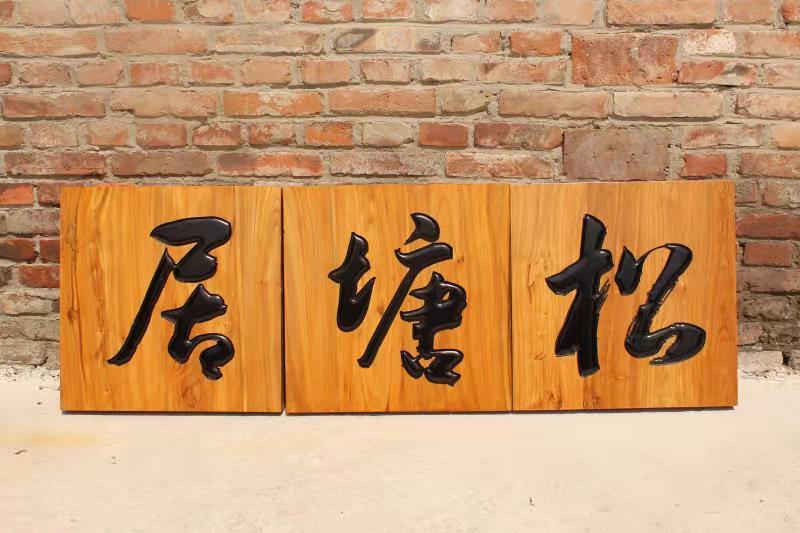 松塘居